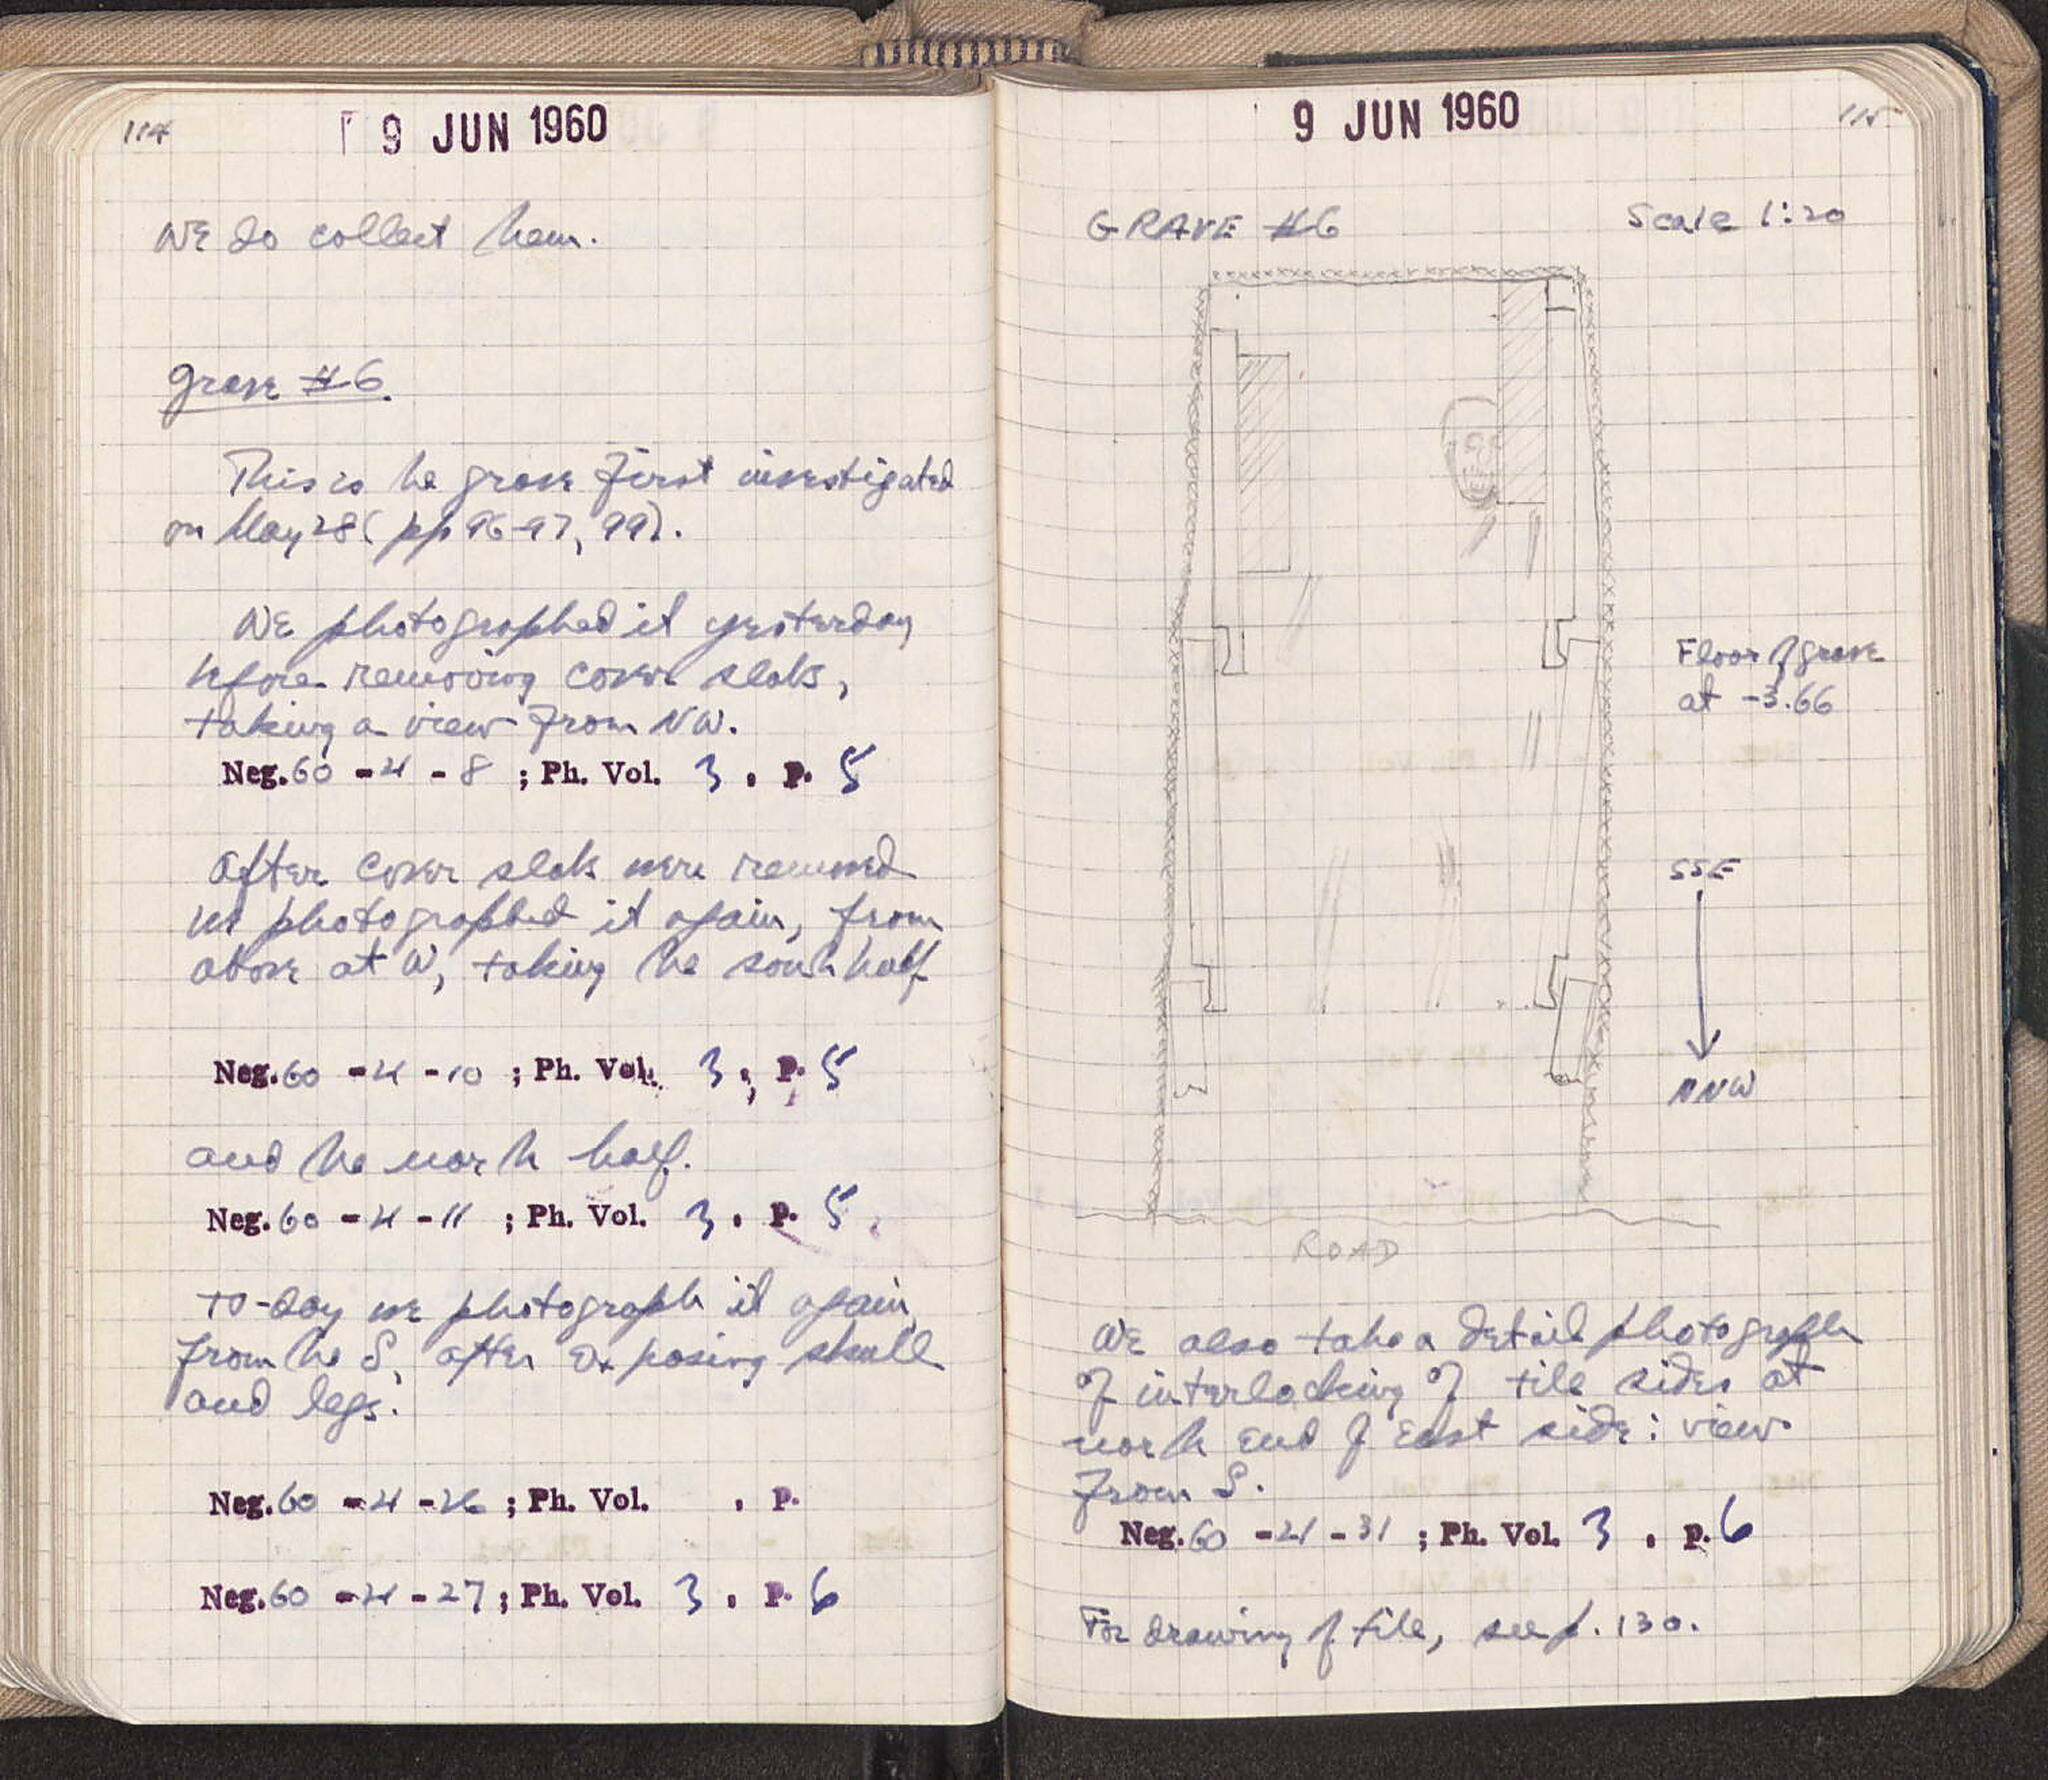 114
9 JUN 1960
We do collect them.
Grave #6.
This is the grave first investigated
on May 28 (pp 96-97, 99).
We photographed it yesterday
before removing cover slabs,
taking a view from NW.
Neg. 60 - 21 - 8 ; Ph. Vol. 3, p. 5
After cover slabs were removed
we photographed it again, from
above at W, taking the south half
Neg. 60 - 21 - 10 ; Ph. Vol. 3, p. 5
and the north half.
Neg. 60 - 21 - 11 ; Ph. Vol. 3, p. 5
To-day we photograph it again
from the S, after exposing skull
and legs.
Neg. 60 - 21 - 26 ; Ph. Vol. , p.
Neg. 60 - 21 - 27 ; Ph. Vol. 3, p. 6
9 JUN 1960
115
GRAVE #6
Scale 1:20
Floor of grave
at -3.66
SSE
NNW
ROAD
We also take a detail photograph
of interlocking of tile sides at
north end of East side: view
from S.
Neg. 60 - 21 - 31 ; Ph. Vol. 3, p. 6
For drawing of tile, see p. 130.